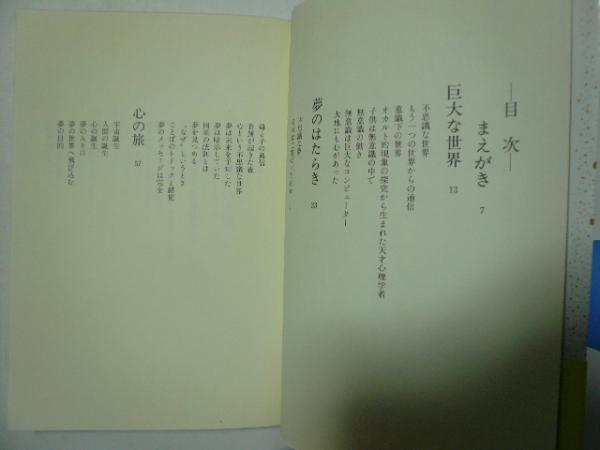 ―目 次―
まえがき 7
巨大な世界 13
不思議な世界
もう一つの世界からの通信
意識下の世界
オカルト的現象の探究から生まれた天才心理学者
子供は無意識の中で
無意識の働き
無意識は巨大なコンピューター
大地にも心があった
夢のはたらき 33
母と子の通信
心という不思議な世界
夢は未来を予知した
夢は暗示していた
因果の法則とは
夢を見つめる
"なぜ"というとき
ことばのトリックと錯覚
夢のメッセージは完全
心の旅 57
宇宙誕生
人間の誕生
心の誕生
夢の入り口
夢の世界へ飛び込む
夢の目的